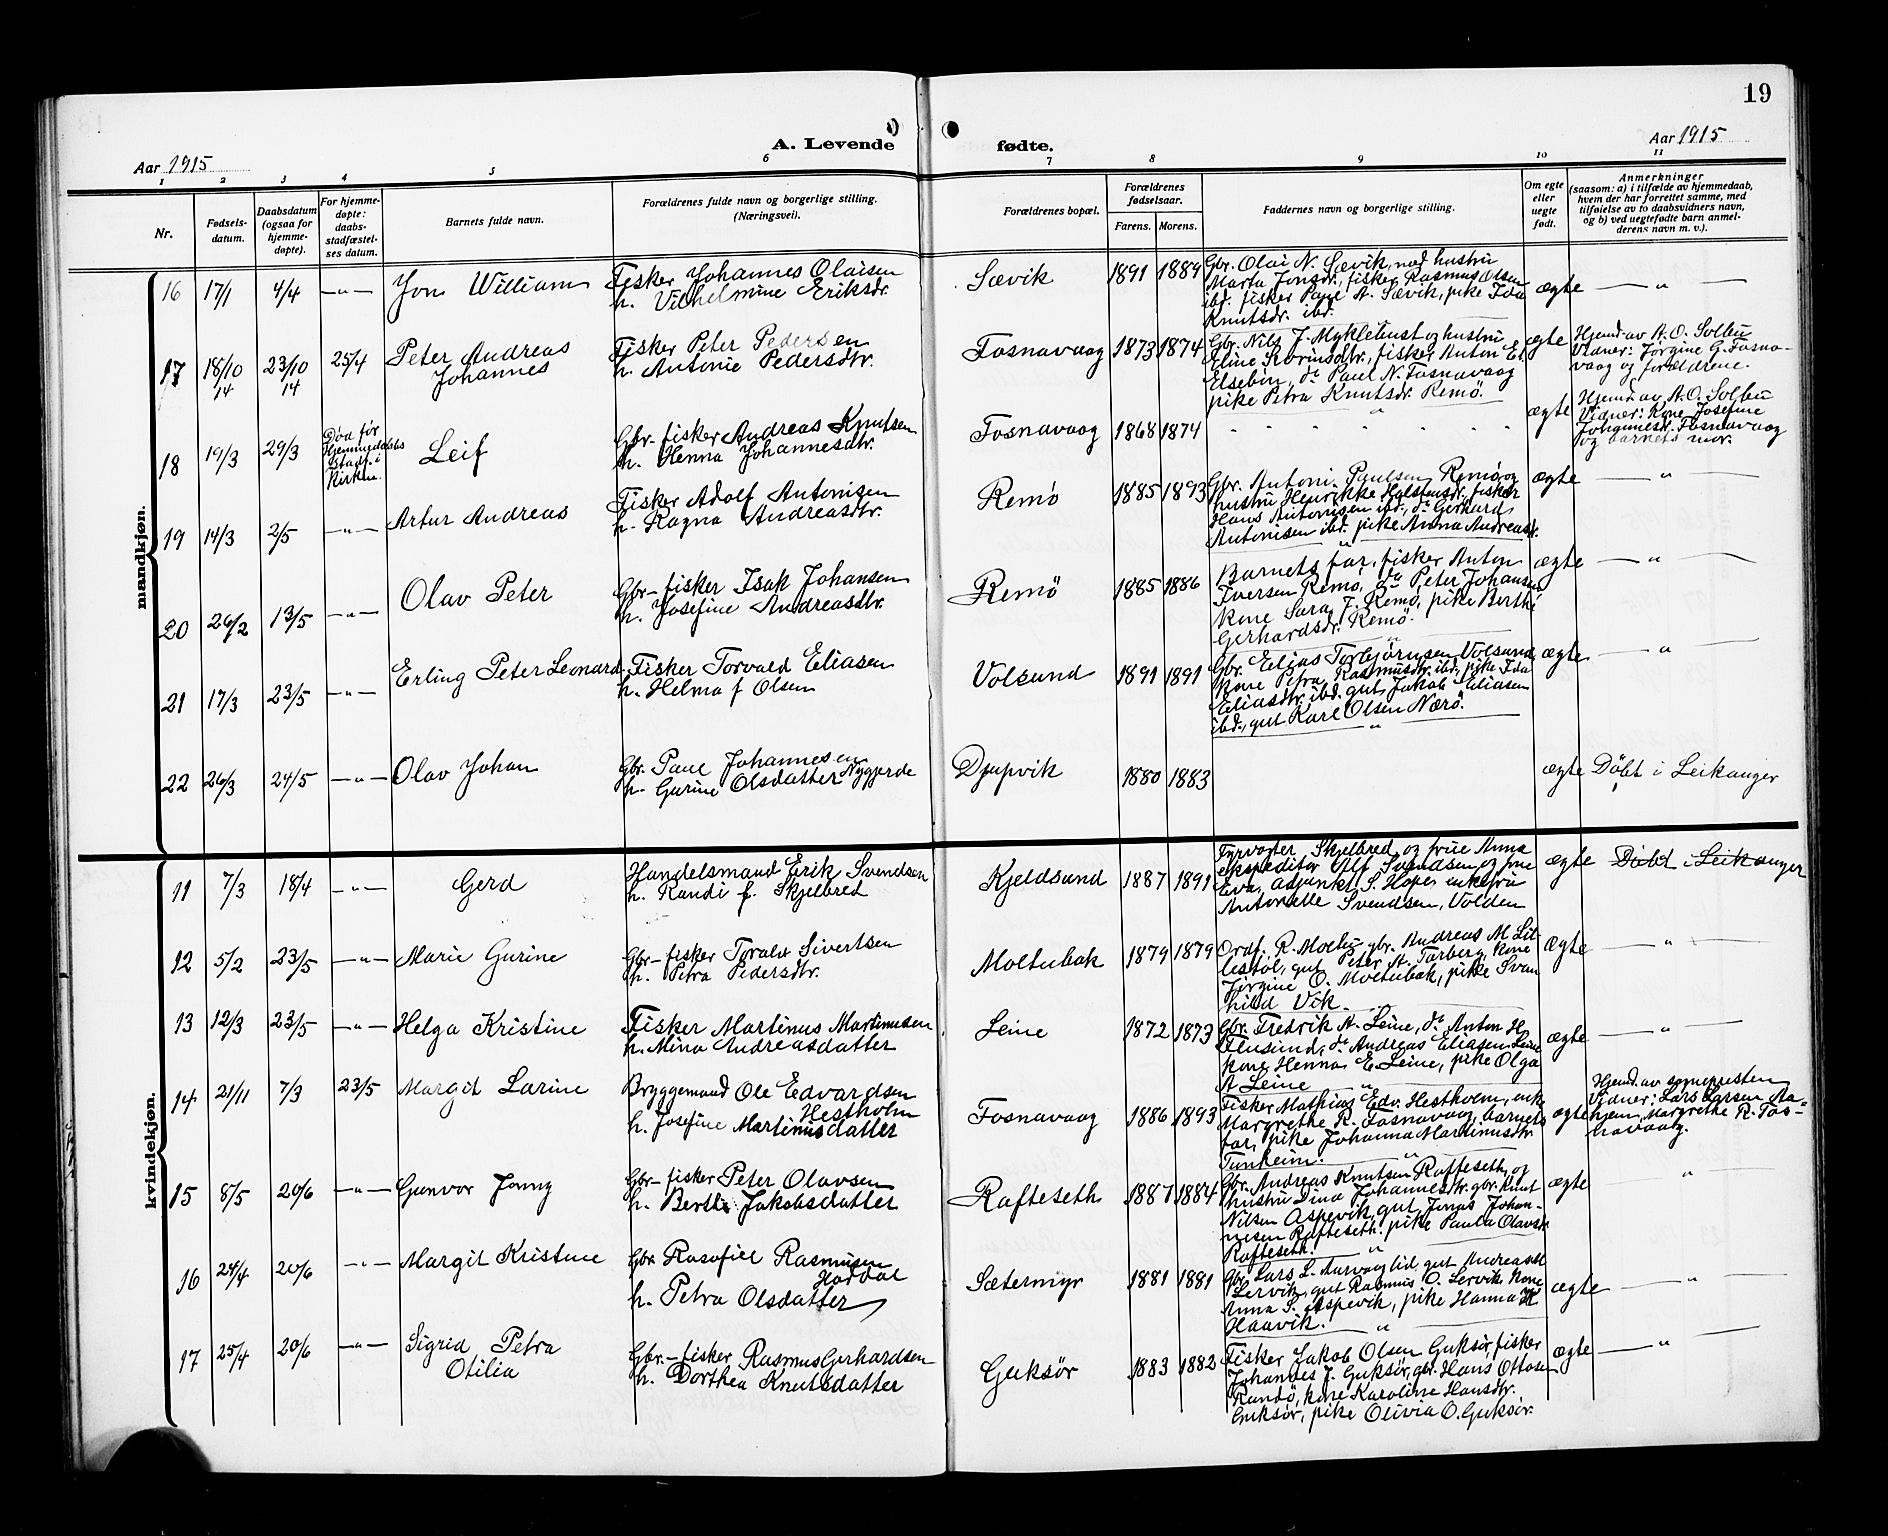 19
A. Levende fødte.
Aar 1915
Aar 1915
1 2 3 4 5 6 7 8 9 10 11
Nr.
Fødsels-
datum.
Daabsdatum
(ogsaa for
hjemme-
døpte).
For hjemme-
døpte:
daabs-
stadfæstel-
ses datum.
Barnets fulde navn.
Forældrenes fulde navn og borgerlige stilling.
(Næringsvei).
Forældrenes bopæl.
Forældrenes
fødselsaar.
Farens. Morens.
Faddernes navn og borgerlige stilling.
Om egte
eller
uegte
født.
Anmerkninger
(saasom: a) i tilfælde av hjemmedaab,
hvem der har forrettet samme, med
tilføielse av to daabsvidners navn,
og b) ved uegtefødte barn anmel-
derens navn m. v.).
mandkjøn.
16 17/1 4/4 —"— Jon William
Fisker Johannes Olaisen
h. Vilhelmine Eriksdr.
Sævik 1891 1889
Gbr. Olai N. Sævik, med hustru
Marta Jonsdr., fisker Rasmus Olsen
ibd. fisker Paul A. Sævik, pike Ida
Knutsdr. ibd.
ægte — " —
17 18/10 14 23/10 14 25/4 Peter Andreas
Johannes
Fisker Peter Pedersen
h. Antonie Pedersdtr.
Fosnavaag 1873 1874
Gbr. Nils J. Myklebust og hustru
Eline Severinsdtr., fisker Anton El.
Elsebøn, do Paul N. Fosnavaag
pike Petra Knutsdr. Remø.
ægte
Hjemd. av A. O. Solbu
Vidner: Jørgine G. Fosna-
vaag og forældrene.
18 19/3 29/3
Død før
Hjemmedaabs
Stadf. i
Kirken.
Leif
Gbr-fisker Andreas Knutsen
h. Henna Johannesdtr.
Fosnavaag 1868 1874
ægte
Hjemd. av A. O. Solbu
Vidner: Kone Josefine
Johannesdr. Fosnavaag
og barnets mor.
19 14/3 2/5 —"— Artur Andreas
Fisker Adolf Antonisen
h. Ragna Andreasdtr.
Remø 1885 1893
Gbr. Antoni Paulsen Remø og
hustru Henrikke Holstensdr., fisker
Hans Antonisen ibd., do Gerhard
Antonisen ibd. pike Anna Andreasdr.
ægte — " —
20 26/2 13/5 —"— Olav Peter
Gbr-fisker Isak Johansen
h. Josefine Andreasdtr.
Remø 1885 1886
Barnets far, fisker Anton
Iversen Remø, do Peter Johansen
kone Sara J. Remø, pike Berthe
Gerhardsdr. Remø.
ægte — " —
21 17/3 23/5 —"— Erling Peter Leonard
Fisker Torvald Eliasen
h. Helma f Olsen
Volsund 1891 1891
Gbr. Elias Torbjørnsen Volsund,
kone Petra Rasmusdtr. ibd., pike Ida
Eliasdtr. ibd. gut Jakob Eliasen
ibd., gut Karl Olsen Nærø.
ægte — " —
22 26/3 24/5 —"— Olav Johan
Gbr. Paul Johannesen
Nygjerde
h. Gurine Olsdatter
Djupvik 1880 1883
ægte Døbt i Leikanger
kvindekjøn.
11 7/3 18/4 —"— Gerd
Handelsmand Erik Svendsen
h. Randi f. Skjelbred
Kjeldsund 1887 1891
Fyrvogter Skjelbred og frue Anna
ekspeditør Ulf Svendsen og frue
Eva, adjunkt S. Hope, enkefru
Antonette Svendsen, Volden
ægte Døbt i Leikanger
12 5/2 23/5 —"— Marie Gurine
Gbr-fisker Toralv Sivertsen
h. Petra Pedersdtr.
Moltubak 1879 1879
Ordf. R. Moltu, gbr. Andreas M. Lil-
lestøl, gut Peter A. Tarberg, kone
Jørgine O. Moltubak, pike Svan
hild Vik.
ægte — " —
13 12/3 23/5 —"— Helga Kristine
Fisker Martinus Martinusen
h. Mina Andreasdatter
Leine 1872 1873
Gbr. Fredrik A. Leine, do Anton H
Flusund, do Andreas Eliasen Leine
kone Henna E. Leine, pike Olga
A Leine
ægte — " —
14 21/11 7/3 23/5 Margit Larine
Bryggemand Ole Edvardsen
Hestholm
h. Josefine Martinusdatter
Fosnavaag 1886 1893
Fisker Mathias Edv. Hestholm, enke
Margrethe R. Fosnavaag, barnets
far, pike Johanna Martinusdtr.
Tunheim.
ægte
Hjemd. av sognepresten
Vidner: Lars Larsen Aa=
hjem, Margrethe R. Fos-
navaag.
15 8/5 20/6 —"— Gunvor Jonny
Gbr-fisker Peter Olavsen
h. Berthe Jakobsdatter
Rafteseth 1887 1884
Gbr. Andreas Knutsen Rafteseth og
hustru Dina Johannesdtr. gbr. Knut
Nilsen Aspevik, gut Jonas Johan-
nesen Rafteseth. pike Paula Olavsdr.
Rafteseth.
ægte "
16 24/4 20/6 —"— Margit Kristine
Gbr. Rasafiel Rasmusen
Hardal
h. Petra Olsdatter
Sætermyr 1881 1881
Gbr. Lars L. Aurvaaglid, gut Andreas M
Lervik, gut Rasmus O. Lervik, kone
Anna S. Aspevik, pike Hanna H
Haavik.
ægte — " —
17 25/4 20/6 —"— Sigrid Petra
Otilia
Gbr.-fisker Rasmus Gerhardsen
h. Dorthea Knutsdatter
Guksør 1883 1882
Fisker Jakob Olsen Guksør, fisker
Johannes J. Guksør, gbr. Hans Ottosen
Randø, kone Karoline Hansdtr.
Guksør, pike Olivia O. Guksør.
ægte — " —